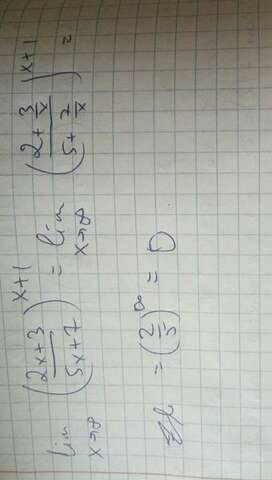 lim x→∞ ((2x+3)/(5x+7))^(x+1) = lim x→∞ ((2+3/x)/(5+7/x))^(x+1) =
= (2/5)^∞ = 0